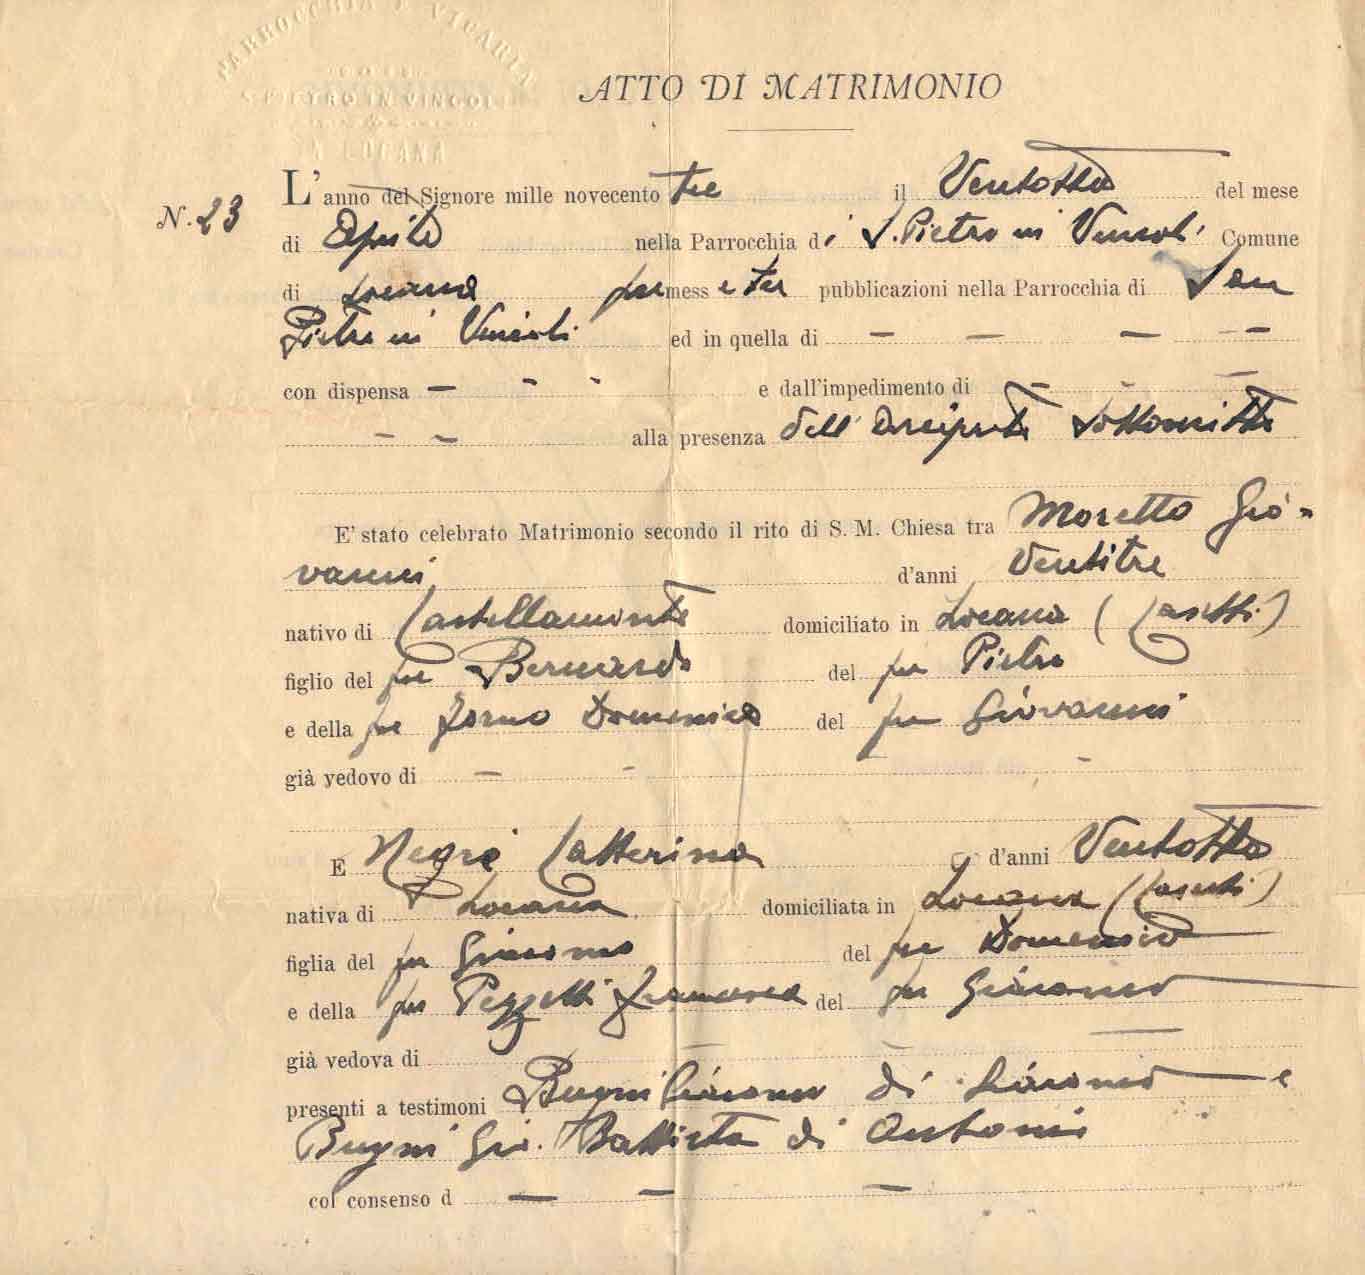 PARROCCHIA E VICARIA
S. PIETRO IN VINCOLI
LOCANA
ATTO DI MATRIMONIO
N. 23
L'anno del Signore mille novecento tre il Ventotto del mese
di Aprile nella Parrocchia di S. Pietro in Vincoli Comune
di Locana premesse tre pubblicazioni nella Parrocchia di San
Pietro in Vincoli ed in quella di — — — — —
con dispensa — - - e dall'impedimento di — - —
— — alla presenza dell' Arciprete sottoscritto
E' stato celebrato Matrimonio secondo il rito di S. M. Chiesa tra Moretto Gio=
vanni d'anni Ventitre
nativo di Castellamonte domiciliato in Locana (Casetti)
figlio del fu Bernardo del fu Pietro
e della fu Zorno Domenica del fu Giovanni
già vedovo di — - -
E Negri Catterina d'anni Ventotto
nativa di Locana domiciliata in Locana (Casetti)
figlia del fu Giacomo del fu Domenico
e della fu Pezzetti Francesca del fu Giacomo
già vedova di —
presenti a testimoni Bugni Giacomo di Giacomo e
Bugni Gio. Battista di Antonio
col consenso d — — —